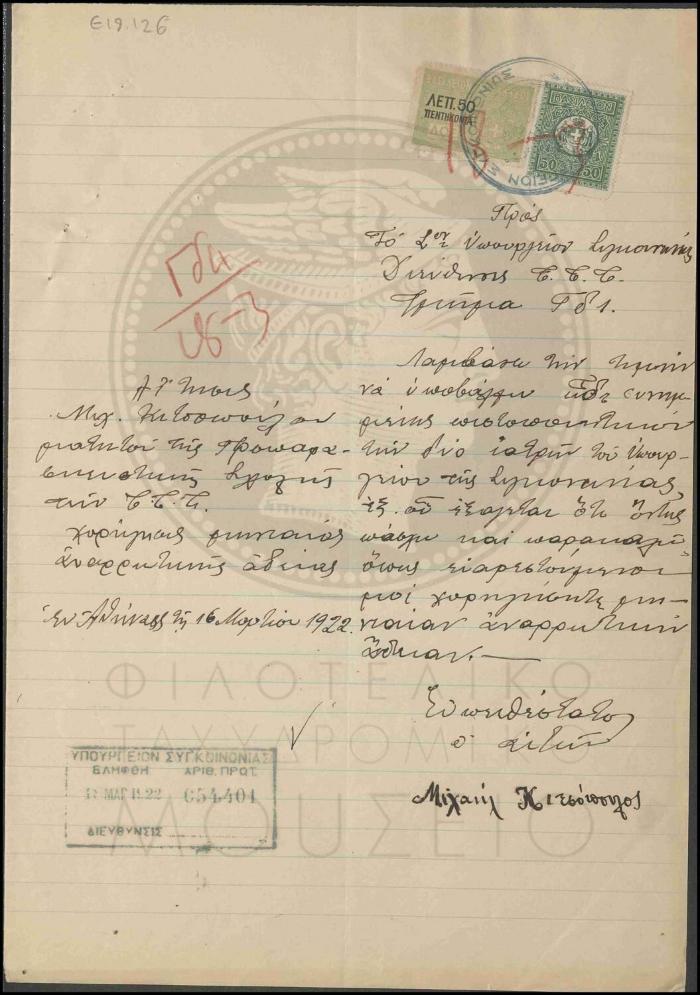 Ε19.126
ΛΕΠ. 50
ΠΕΝΤΗΚΟΝΤΑ
50 50
Πρὸς
Τὸ Σον Ὑπουργεῖον Συγκοινωνίας
Διεύθυνσις Τ.Τ.Τ.
Τμῆμα Γδ1.
Γδη
Αἴτησις
Μιχ.
μαθητοῦ τῆς Προπαρα-
σκευαστικῆς Σχολῆς
τῶν Τ.Τ.Τ.
χορηγήσεως μηνιαίας
ἀναρρωτικῆς ἀδείας
Ἐν Ἀθήναις τῇ 16 Μαρτίου 1922.
Λαμβάνω τὴν τιμὴν
νὰ ὑποβάλω
πιστοποιητικὸν
τῶν δύο ἰατρῶν τοῦ Ὑπουρ-
γείου τῆς Συγκοινωνίας
ἐξ οὗ ἐξάγεται ὅτι ὄντως
πάσχω καὶ παρακαλῶ
ὅπως εὐαρεστούμενοι
μοὶ χορηγήσητε μη-
νιαίαν ἀναρρωτικὴν
ἄδειαν.—
Εὐπειθέστατος
ὁ αἰτῶν
Μιχαὴλ Κιτσόπουλος
ΥΠΟΥΡΓΕΙΟΝ ΣΥΓΚΟΙΝΩΝΙΑΣ
ΕΛΗΦΘΗ ΑΡΙΘ. ΠΡΩΤ.
ΜΑΡ 1922 054401
ΔΙΕΥΘΥΝΣΙΣ
ΦΙΛΟΤΕΛΙΚΟ
ΤΑΧΥΔΡΟΜΙΚΟ
ΜΟΥΣΕΙΟ